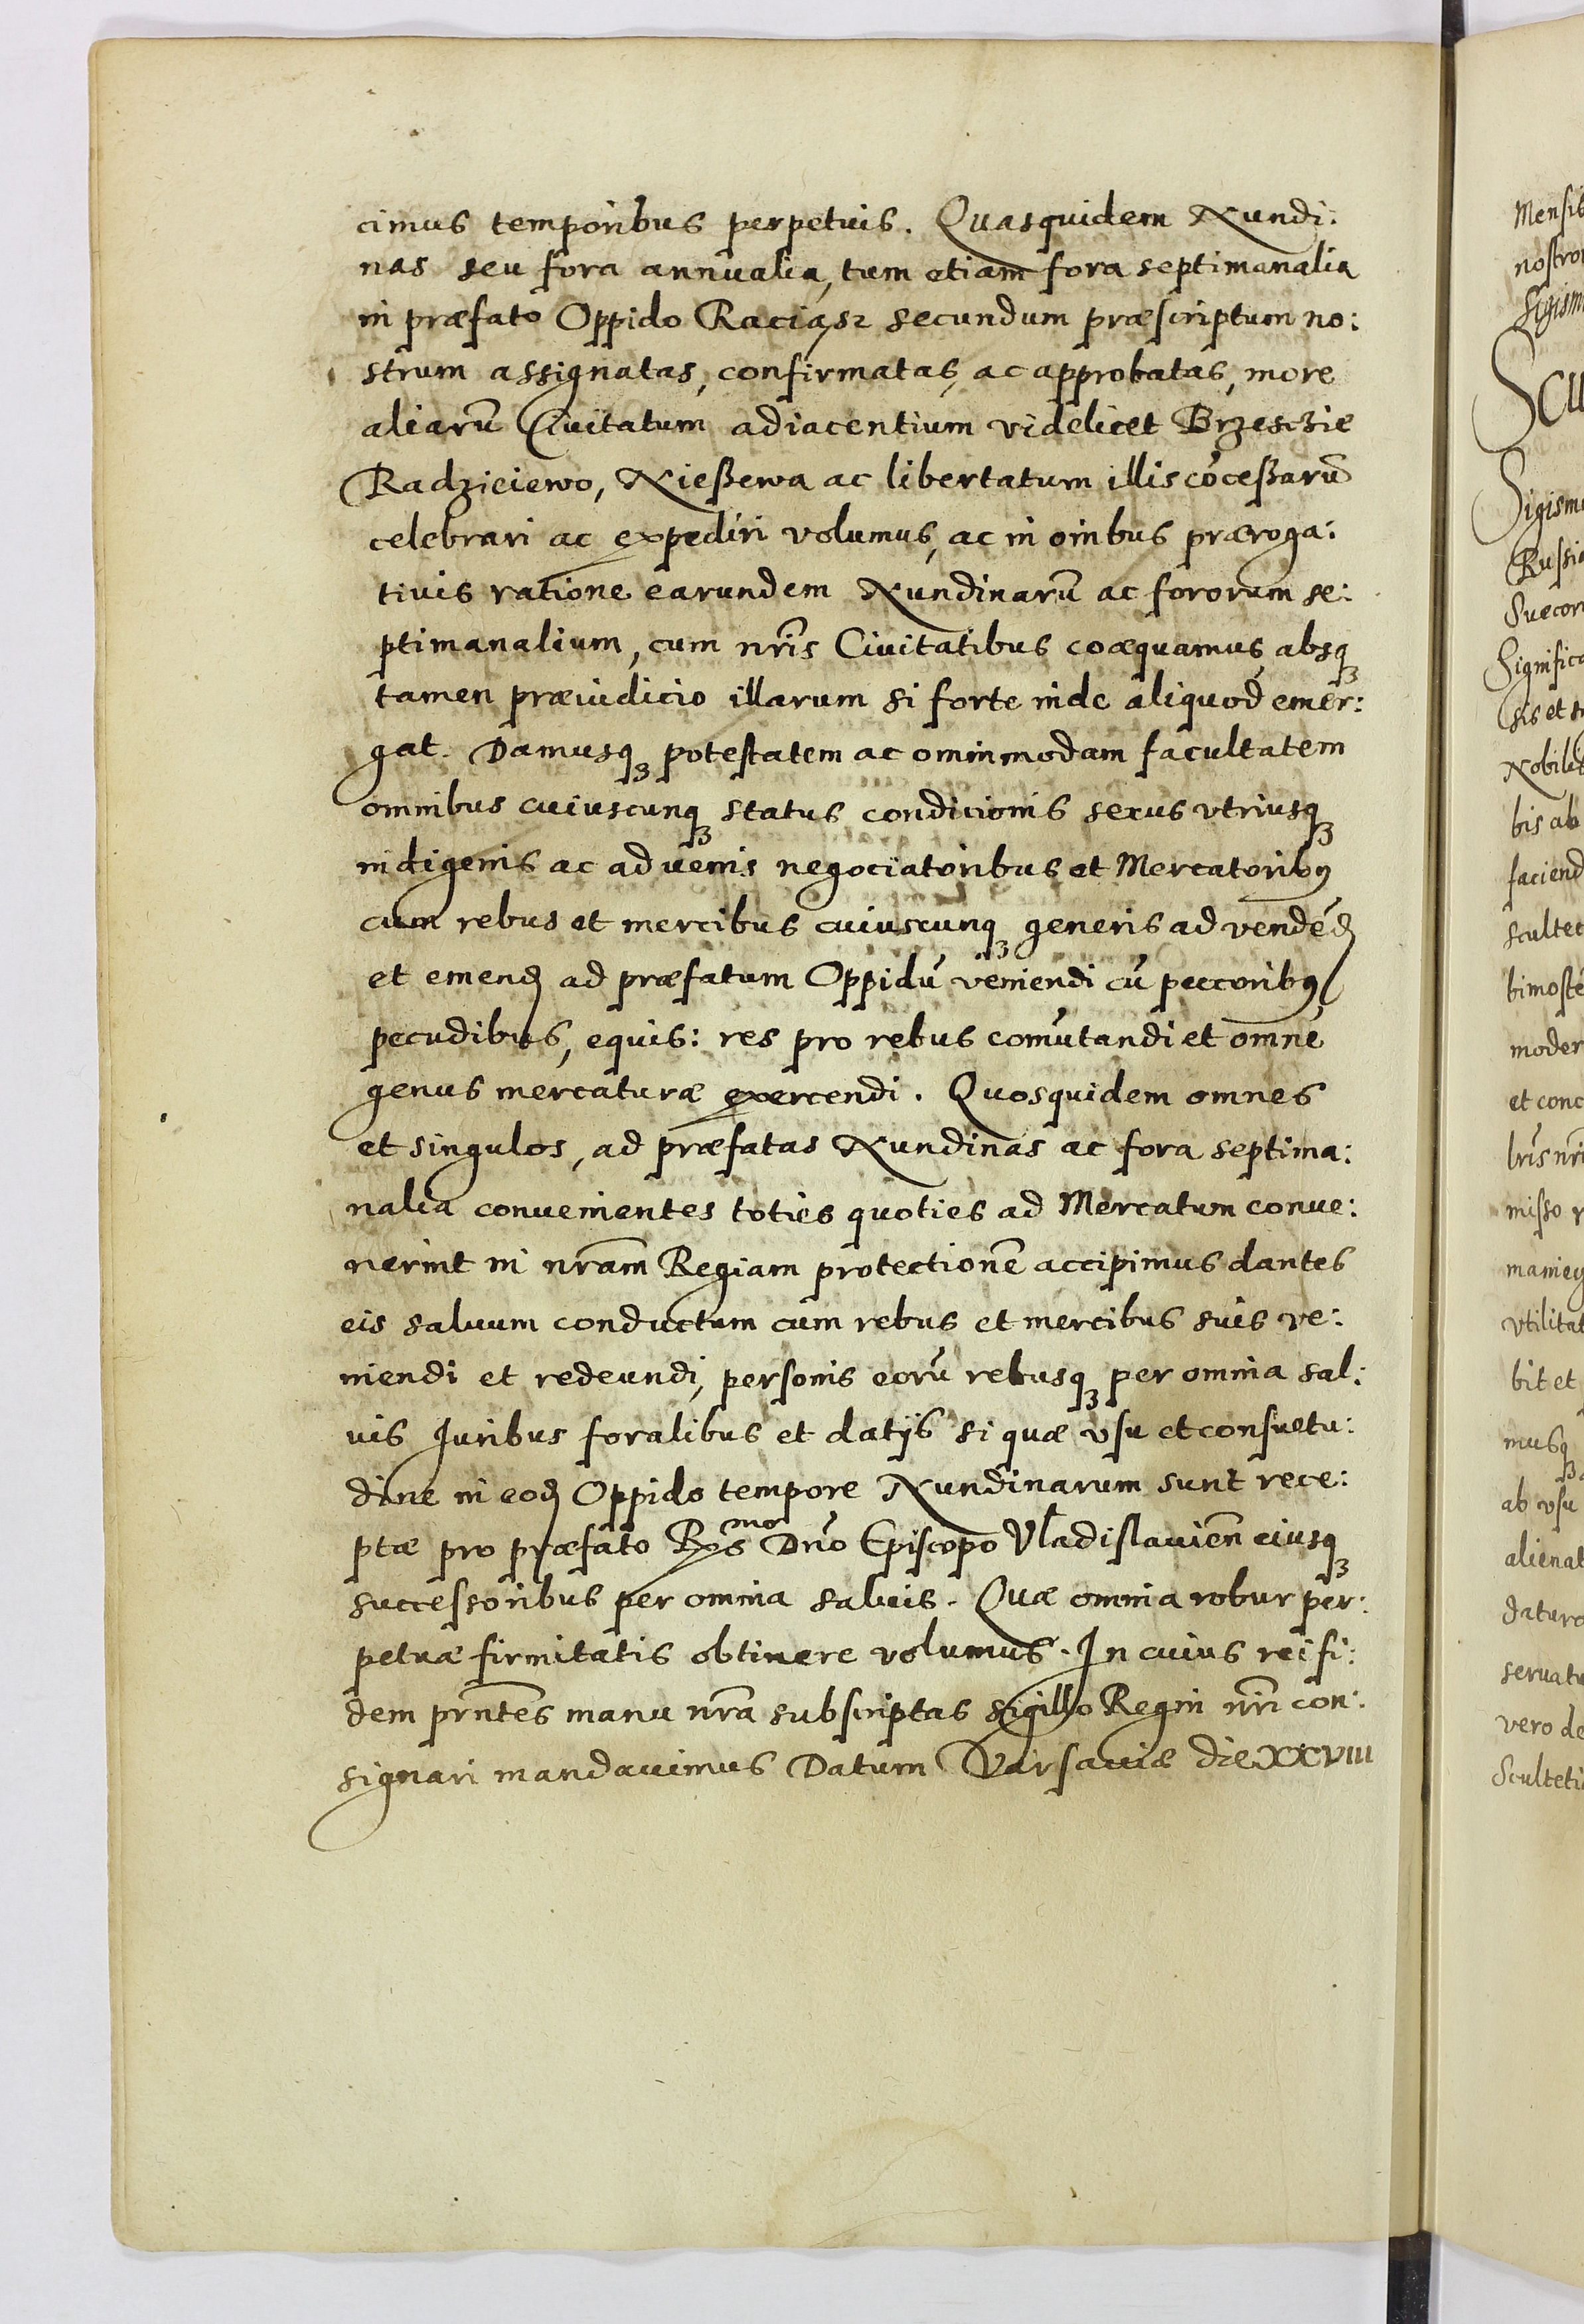 cimus temporibus perpetuis. Quasquidem Nundi:
nas seu fora annualia, tum etiam fora septimanalia
in præfato Oppido Raciąsz secundum præscriptum no:
strum assignatas, confirmatas, ac approbatas, more
aliarũ Civitatum adiacentium videlicet Brzesczie
Radzieiewo, Nießewa ac libertatum illis cõceßarũ
celebrari ac expediri volumus, ac in oĩnibus præroga:
tivis ratione earundem Nundinarũ ac fororum se:
ptimanalium, cum nr̃is Civitatibus coæquamus, absqꝫ
tamen præiudicio illarum si forte inde aliquod emer:
gat. Damusqꝫ potestatem ac omnimodam facultatem
omnibus cuiuscunqꝫ status condicionis sexus vtriusqꝫ
indigenis ac advenis negociatoribus et Mercatoribꝰ
cum rebus et mercibus cuiuscunqꝫ generis ad vendẽd
et emend ad præfatum Oppidũ veniendi cũ peccoribꝰ
pecudibus, equis: res pro rebus comũtandi et omne
genus mercaturæ exercendi. Quosquidem omnes
et singulos, ad præfatas Nundinas ac fora septima:
nalia convenientes toties quoties ad Mercatum conve:
nerint in nr̃am Regiam protectionẽ accipimus dantes
eis salvum conductum cum rebus et mercibus suis ve:
niendi et redeundi, personis eorũ rebusqꝫ per omnia sal:
vis Juribus foralibus et datijs si quæ vsu et consuetu:
dine in eod Oppido tempore Nundinarum sunt rece:
ptæ pro præfato Rṽsmo Dño Episcopo Vladislavieñ eiusqꝫ
successoribus per omnia salvis. Quæ omnia robur per:
petuæ firmitatis obtinere volumus. In cuius rei fi:
dem pr̃ntes manu nr̃a subscriptas sigillo Regni nr̃i con:
signari mandavimus Datum Varsaviæ die XXVIII
Mensis
Sigism
Scu
Sigism
Russiæ
Significa
Nobilit
bis ab
faciend
scultet
et conc
misso
vtilitat
bit et
musqꝫ
ab vsu
alienat
vero de
Sculteti